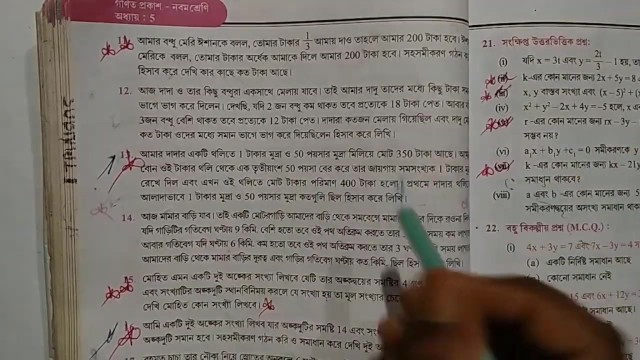 গণিত প্রকাশ - নবমশ্রেণি
অধ্যায় : 5
আমার বন্ধু মেরি ঈশানকে বলল, তোমার টাকার 1/3 আমায় দাও তাহলে আমার 200 টাকা হবে।
মেরিকে বলল, তোমার টাকার অর্ধেক আমাকে দিলে আমার 200 টাকা হবে। সহসমীকরণ গঠন
হিসাব করে দেখি কার কাছে কত টাকা আছে।
12. আজ দাদা ও তার কিছু বন্ধুরা একসাথে মেলায় যাবে। তাই আমার দাদু তাদের মধ্যে কিছু টাকা
ভাগে ভাগ করে দিলেন। দেখছি, যদি 2 জন বন্ধু কম থাকত তবে প্রত্যেকে 18 টাকা পেত। আবার
3জন বন্ধু বেশি থাকত তবে প্রত্যেকে 12 টাকা পেত। দাদারা কতজন মেলায় গিয়েছিল এবং দাদু
কত টাকা ওদের মধ্যে সমান ভাগে ভাগ করে দিয়েছিলেন হিসাব করে লিখি।
আমার দাদার একটি থলিতে 1 টাকার মুদ্রা ও 50 পয়সার মুদ্রা মিলিয়ে মোট 350 টাকা আছে।
বোন ওই টাকার থলি থেকে এক তৃতীয়াংশ 50 পয়সা বের করে তার জায়গায় সমসংখ্যক 1 টাকার
রেখে দিল এবং এখন ওই থলিতে মোট টাকার পরিমাণ 400 টাকা হলো। প্রথমে দাদার
আলাদাভাবে 1 টাকার মুদ্রা ও 50 পয়সার মুদ্রা কতগুলি ছিল হিসাব করে লিখি।
14. আজ মামার বাড়ি যাব। তাই একটি মোটরগাড়ি আমাদের বাড়ি থেকে সমবেগে মামার দিকে রওনা
যদি গাড়িটির গতিবেগ ঘণ্টায় 9 কিমি. বেশি হতো তবে ওই পথ অতিক্রম করতে তার সময় কম
আবার গতিবেগ যদি ঘণ্টায় 6 কিমি. কম হতো তবে ওই পথ অতিক্রম করতে তার 3
আমাদের বাড়ি থেকে মামার বাড়ির দূরত্ব এবং গাড়ির গতিবেগ ঘণ্টায় কত কিমি. ছিল
মোহিত এমন একটি দুই অঙ্কের সংখ্যা লিখবে যেটি তার অঙ্কদ্বয়ের সমষ্টির 4
এবং সংখ্যাটির অঙ্কদুটি স্থানবিনিময় করলে যে সংখ্যা হয় তা মূল সংখ্যার চেয়ে
দেখি মোহিত কোন সংখ্যা লিখবে।
আমি একটি দুই অঙ্কের সংখ্যা লিখব যার অঙ্কদুটির সমষ্টি 14 এবং
অঙ্কদুটি সমান হবে। সহসমীকরণ গঠন করি ও সমাধান করে দেখি দুই
21. সংক্ষিপ্ত উত্তরভিত্তিক প্রশ্ন:
(i) যদি x = 3t এবং y = 2t/3 − 1 হয়,
k-এর কোন মানের জন্য 2x + 5y = 8
x, y বাস্তব সংখ্যা এবং (x−5)² +
(iv) x² + y² − 2x + 4y = −5 হলে,
r-এর কোন মানের জন্য rx − 3y −
সম্ভব নয়?
(vi) a₁x + b₁y + c₁ = 0 সমীকরণকে
k-এর কোন মানের জন্য kx − 21y
সমাধান থাকবে?
(viii) a এবং b-এর কোন মানের জন্য
সমীকরণদ্বয়ের অসংখ্য সমাধান
22. বহু বিকল্পীয় প্রশ্ন (M.C.Q.) :
(i) 4x + 3y = 7 এবং 7x − 3y = 4
(a) একটি নির্দিষ্ট সমাধান আছে
কোনো সমাধান নেই